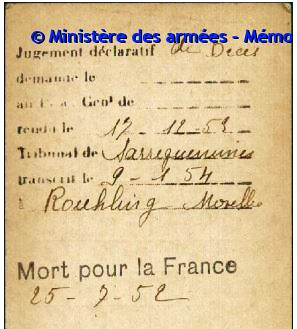 © Ministère des armées - Mémo
Jugement déclaratif de Deces
demande le
au P. a. Genl de
rendu le 17 - 12 - 53
Tribunal de Sarreguemines
transcrit le 9 - 1 54
à Rouhling Moselle
Mort pour la France
25 - 7 - 52